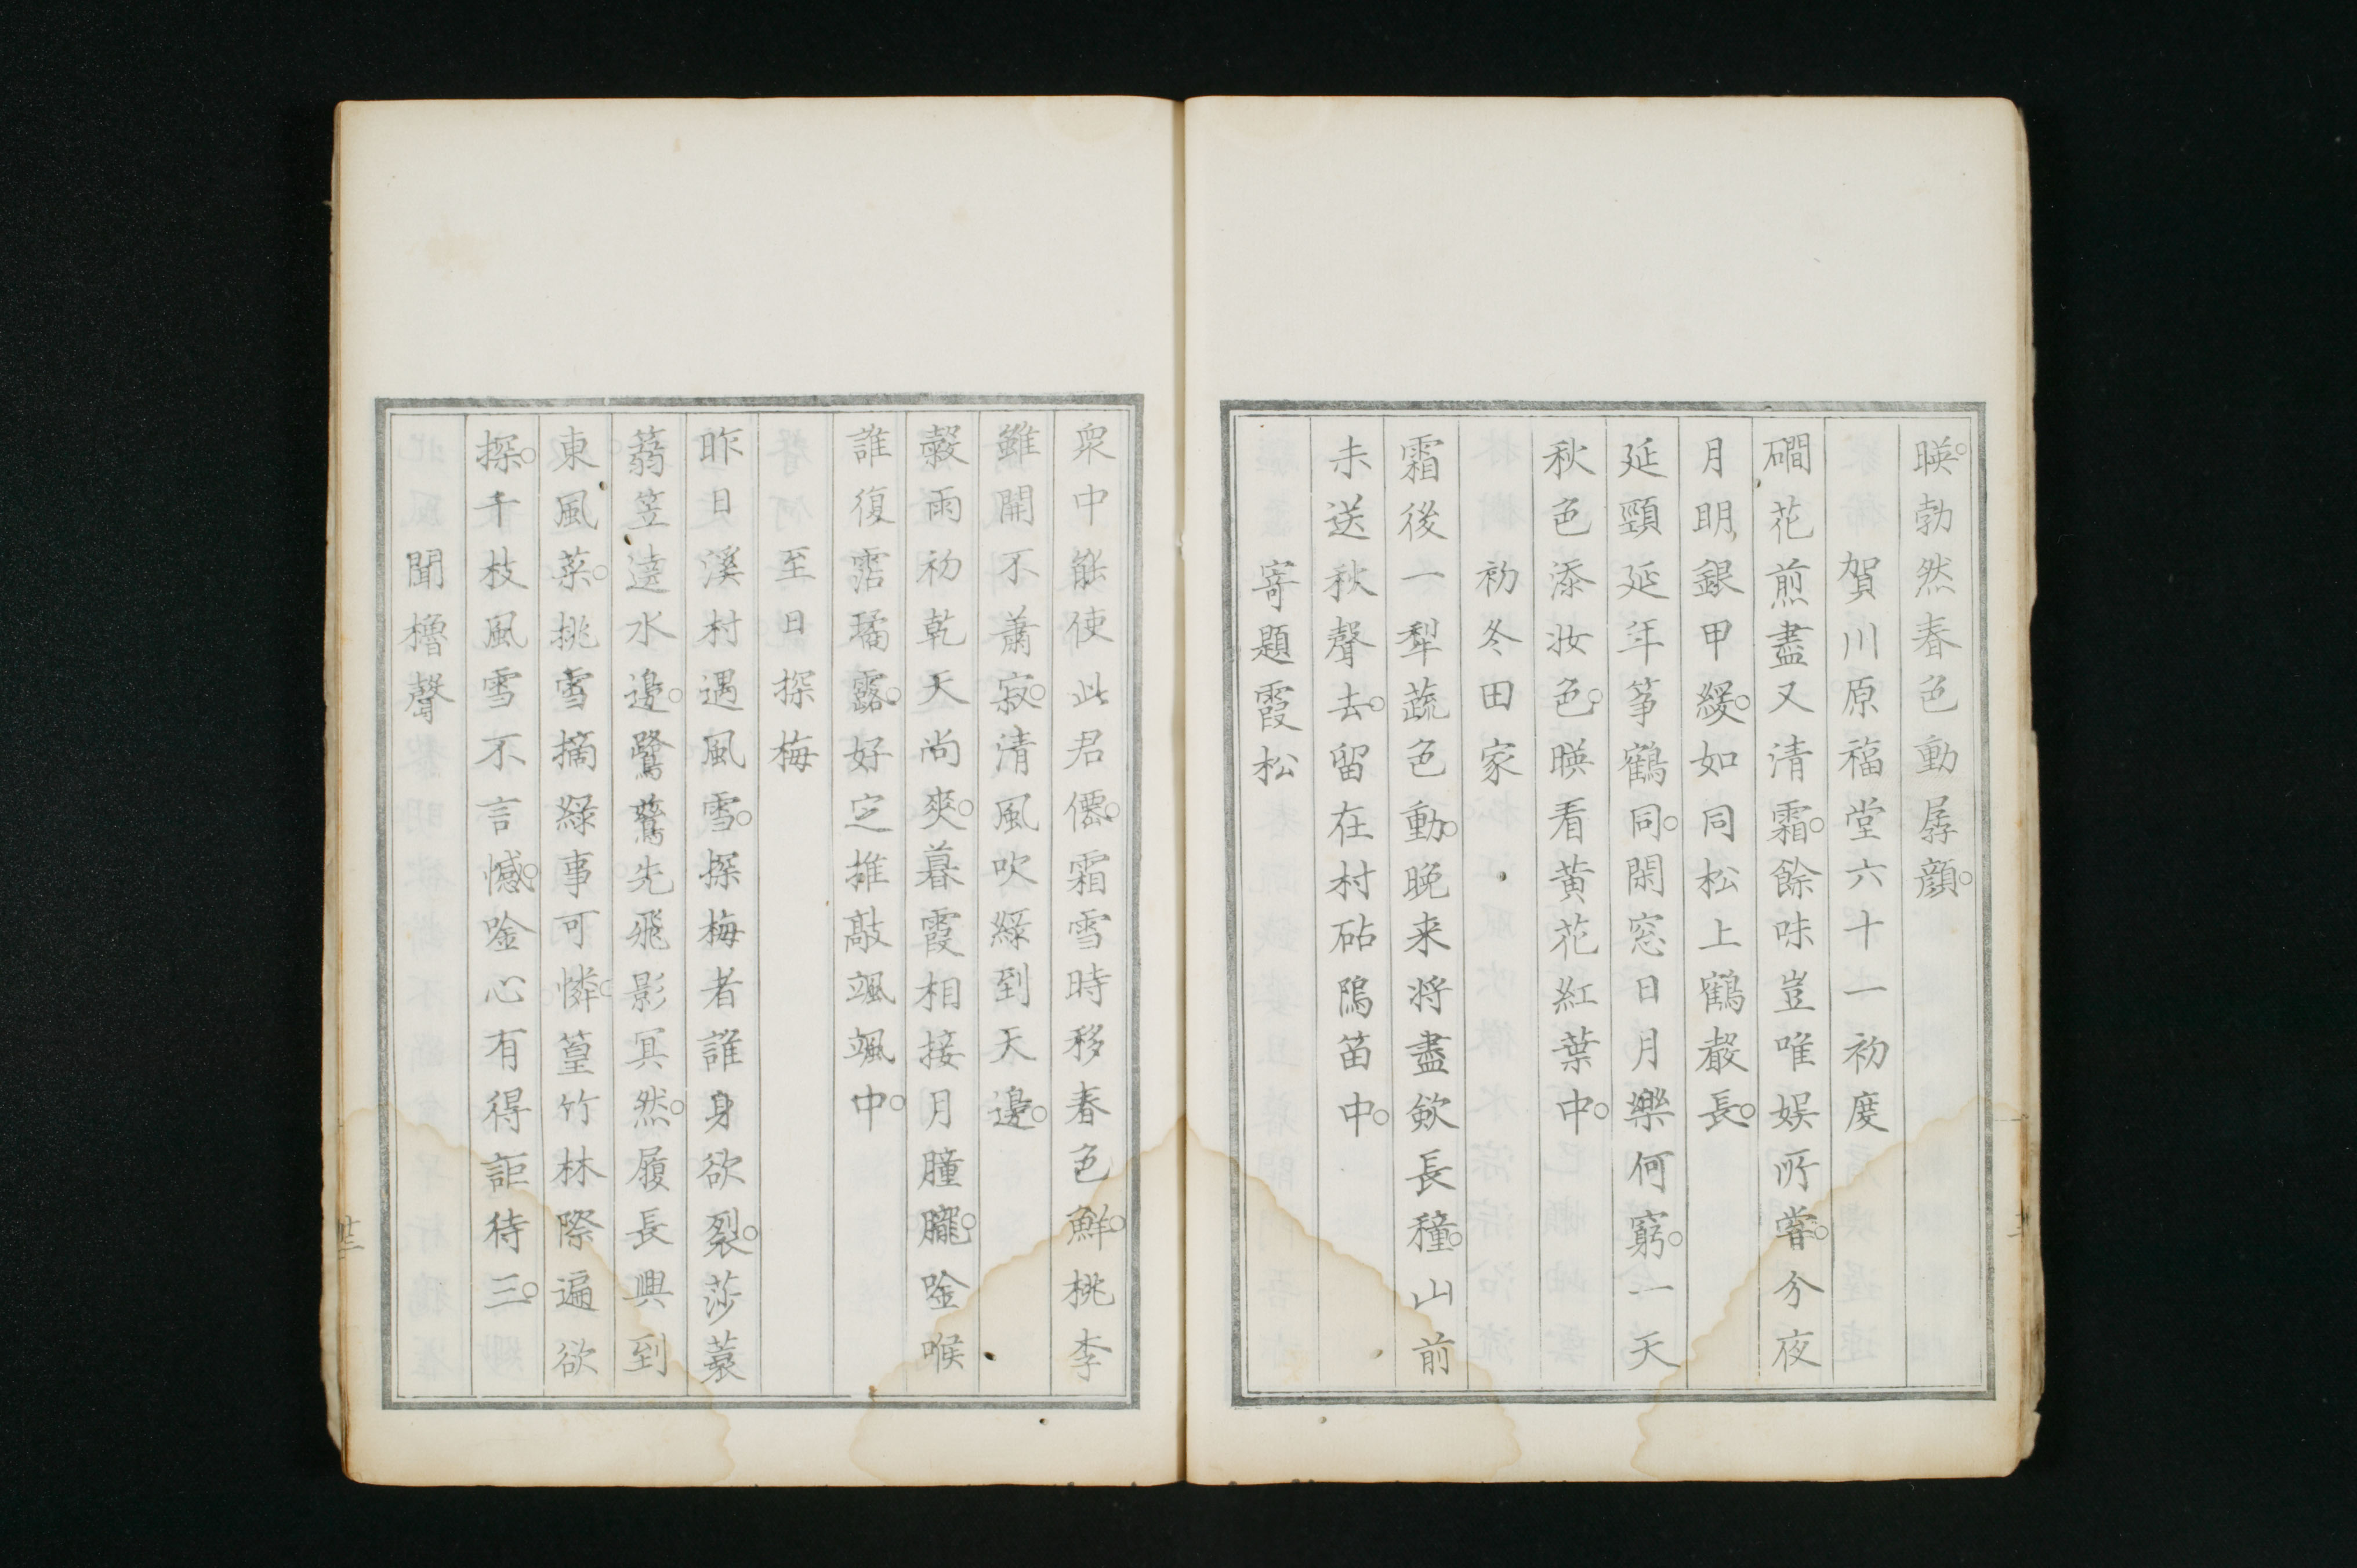 暎勃然春色動孱顔
賀川原福堂六十一初度
磵花煎盡又清霜餘味豈唯娯所嘗分夜
月明銀甲緩如同松上鶴聲長
延頸延年筝鶴同閑窓日月樂何窮一天
秋色添妝色暎看黄花紅葉中
初冬田家
霜後一犁蔬色動晩来将盡歛長穜山前
未送秋聲去留在村砧隝笛中
寄題霞松
衆中能使此君僊霜雪時移春色鮮桃李
雖開不蕭寂清風吹緑到天邊
穀雨初乾天尚爽暮霞相接月朣朧唫喉
誰復霑璚露好定推敲颯颯中
至日探梅
昨日溪村遇風雪探梅者誰身欲裂莎蓑
蒻笠遶水邊鷺鶿先飛影冥然履長興到
東風菜挑雪摘緑事可憐篁竹林際遍欲
探千枝風雪不言憾唫心有得詎待三
聞櫓聲
十三